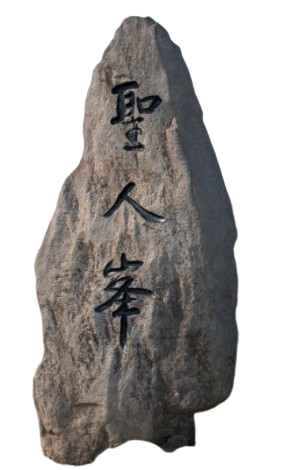 聖人峯